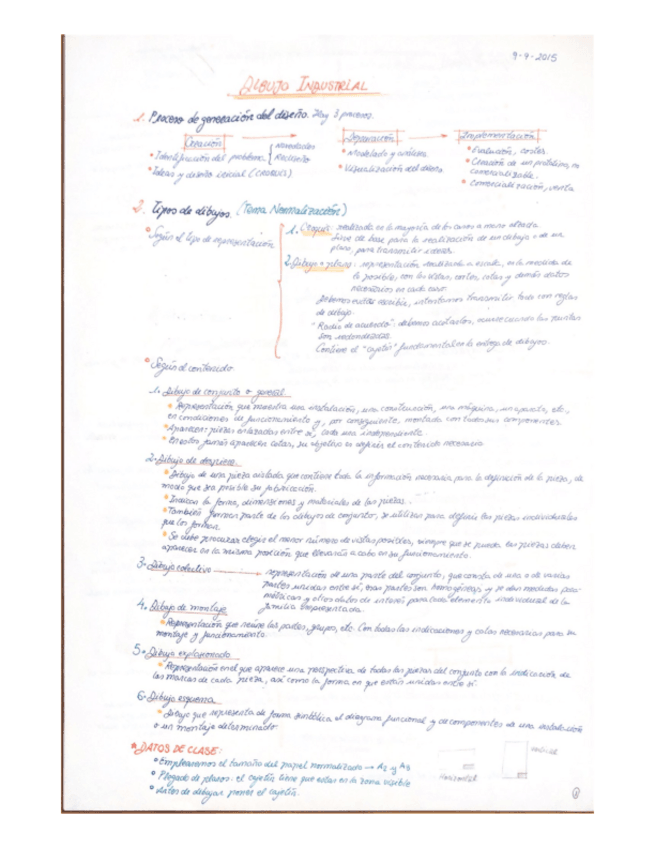 9-9-2015
DIBUJO INDUSTRIAL
1. Proceso de generación del diseño. Hay 3 procesos.
Creación → Depuración → Implementación
• Identificación del problema { Novedades
Rediseño
• Ideas y diseño inicial (creativo)
• Modelado y análisis.
• Visualización del diseño
• Evaluación, costes.
• Creación de un prototipo, no comercializable.
• Comercialización, venta
2. Tipos de dibujos. (Tema Normalización)
• Según el tipo de representación
1. Croquis: realizada en la mayoría de los casos a mano alzada.
Sirve de base para la realización de un dibujo o de un
plano, para transmitir ideas.
2. Dibujo o plano: representación realizada a escala, en la medida de
lo posible, con las vistas, cortes, cotas y demás datos
necesarios en cada caso.
de dibujo.
"Radio de acuerdo": debemos acotarlos, aunque las puntas
son redondeadas.
Contiene el "cajetín" fundamental en la entrega de dibujos.
• Según el contenido
1. Dibujo de conjunto o general
• Representación que muestra una instalación, una construcción, una máquina, un aparato, etc.,
en condiciones de funcionamiento y, por consiguiente, montado con todos sus componentes.
• Aparecen piezas enlazadas entre sí, cada una independiente
• En estos jamás aparecen cotas, su objetivo es definir el contenido necesario
2. Dibujo de despiece.
• Dibujo de una pieza aislada que contiene toda la información necesaria para la definición de la pieza, de
modo que sea posible su fabricación.
• Indican la forma, dimensiones y materiales de las piezas.
• También forman parte de los dibujos de conjunto, se utilizan para definir las piezas individuales
que los forman.
• Se debe procurar elegir el menor número de vistas posibles, siempre que se pueda las piezas deben
aparecer en la misma posición que llevarán a cabo en su funcionamiento.
3. Dibujo colectivo → representación de una parte del conjunto, que consta de una o de varias
partes unidas entre sí, esas partes son homogéneas, y se dan medidas para
métricas y otros datos de interés para cada elemento individual de la
familia representada.
4. Dibujo de montaje
• Representación que reúne las partes, grupos, etc. Con todas las indicaciones y cotas necesarias para su
montaje y funcionamiento.
5. Dibujo explosionado
• Representación en el que aparece una perspectiva de todas las piezas del conjunto con la indicación de
las marcas de cada pieza, así como la forma en que están unidas entre sí.
6. Dibujo esquema
• Dibujo que representa de forma simbólica el diagrama funcional y de componentes de una instalación
o un montaje determinado
* DATOS DE CLASE:
• Emplearemos el tamaño del papel normalizado → A2 y A3
• Plegado de planos: el cajetín tiene que estar en la zona visible
• Antes de dibujar poner el cajetín.
Horizontal
Vertical
1